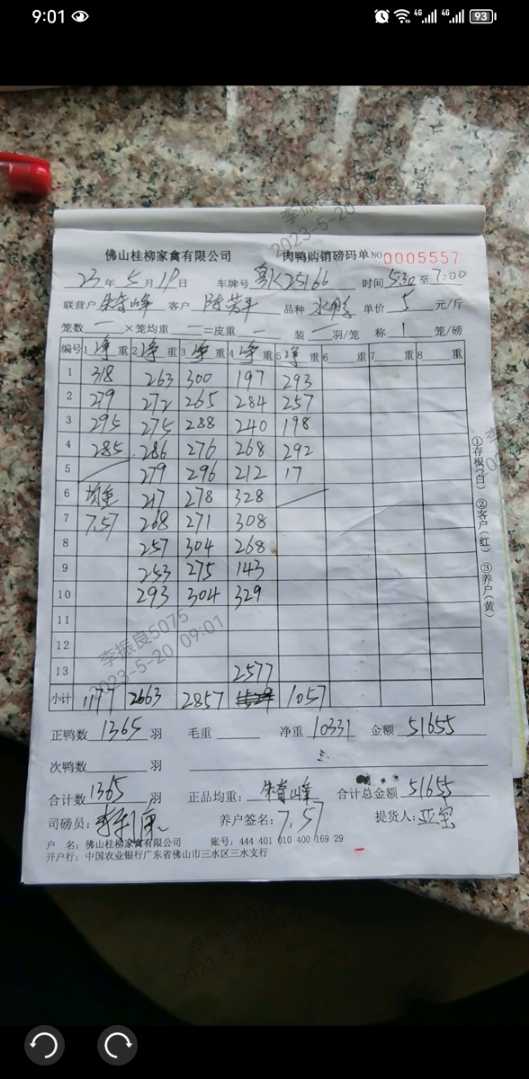 9:01
4G 4G 93
佛山桂柳家禽有限公司 肉鸭购销磅码单 NO 0005557
23年5月19日 车牌号 粤K25166 时间 5:30至7:00
联营户 客户 品种 水鸭 单价 5 元/斤
笼数 一 ×笼均重 一 =皮重 一 装 一 羽/笼 称 1 笼/磅
编号 1净重 2净重 3净重 4净重 5净重 6 重 7 重 8 重
1 318 263 300 197 293
2 279 272 265 284 257
3 295 275 288 240 198
4 285 286 276 268 292
5 279 296 212 17
6 均重 217 278 328
7 7.57 268 271 308
8 257 304 268
9 253 275 143
10 293 304 329
11
12
13 2577
小计 1177 2663 2857 1057
①存根(白) ②客户(红) ③养户(黄)
正鸭数 1365 羽 毛重 净重 10331 金额 51655
次鸭数 羽
合计数 1365 羽 正品均重: 合计总金额 51655
司磅员: 养户签名: 7.57 提货人:
户 名: 佛山桂柳家禽有限公司 账号: 444 401 010 400 169 29
开户行: 中国农业银行广东省佛山市三水区三水支行
李振良5075
2023-5-20 09:01